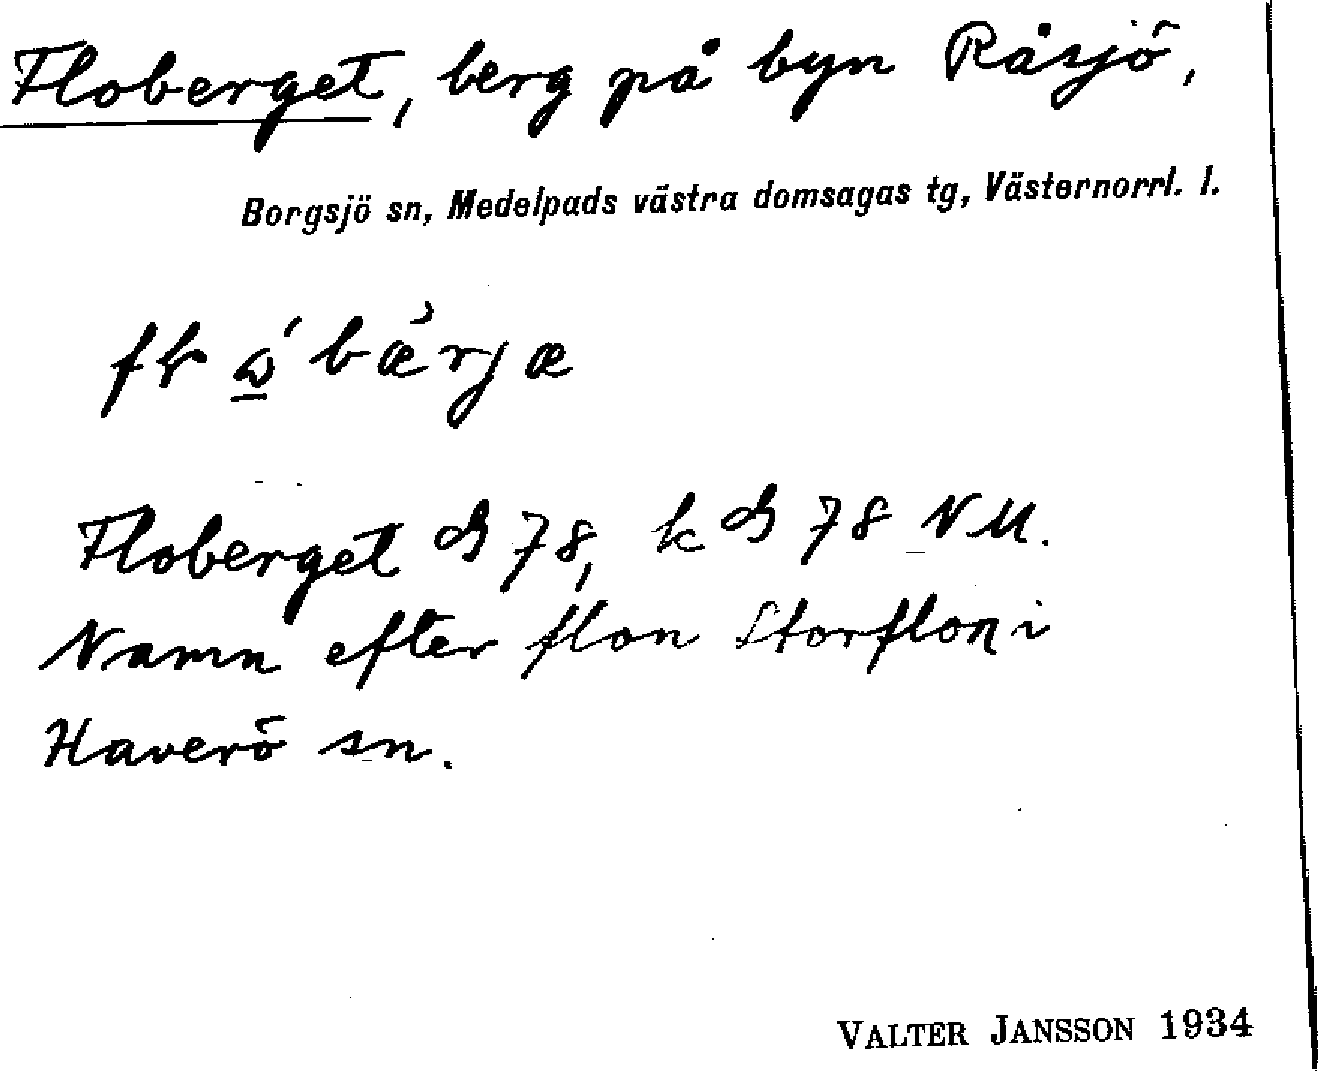 Floberget, berg på byn Råsjö,
Borgsjö sn, Medelpads västra domsagas tg, Västernorrl. l.
Floberget 78, k 78 NM.
Namn efter flon Storflon i
Haverö sn.
VALTER JANSSON 1934